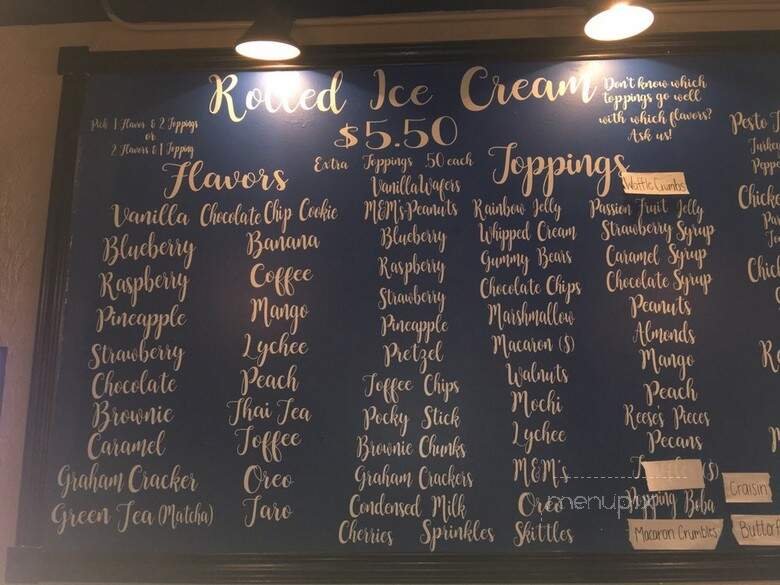 Rolled Ice Cream
$5.50
Extra Toppings .50 each
Pick 1 Flavor & 2 Toppings
or
2 Flavors & 1 Topping
Don't know which
toppings go well
with which flavors?
Ask us!
Flavors
Vanilla
Blueberry
Raspberry
Pineapple
Strawberry
Chocolate
Brownie
Caramel
Graham Cracker
Green Tea (Matcha)
Chocolate Chip Cookie
Banana
Coffee
Mango
Lychee
Peach
Thai Tea
Toffee
Oreo
Taro
Toppings
Vanilla Wafers
M&M's-Peanuts
Blueberry
Raspberry
Strawberry
Pineapple
Pretzel
Toffee Chips
Pocky Stick
Brownie Chunks
Graham Crackers
Condensed Milk
Cherries Sprinkles
Rainbow Jelly
Whipped Cream
Gummy Bears
Chocolate Chips
Marshmallow
Macaron ($)
Walnuts
Mochi
Lychee
M&M's
Oreo
Skittles
Waffle Crumbs
Passion Fruit Jelly
Strawberry Syrup
Caramel Syrup
Chocolate Syrup
Peanuts
Almonds
Mango
Peach
Reese's Pieces
Pecans
($)
Popping Boba
Macaron Crumbles
Craisin
Butterf
Pesto
menupix